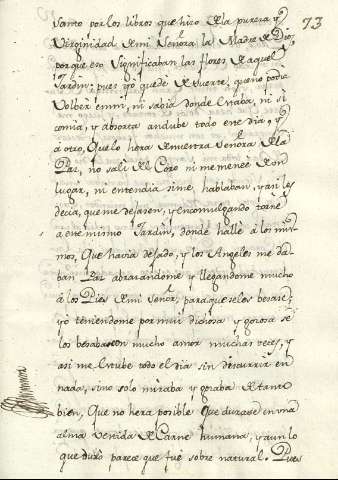 73
santo por los libros que hizo de la pureza y
Virginidad de mi Señora la Madre de Dios,
porque eso significaban las flores de aquel
Jardin: pues yo quede de suerte, que no podia
Volber en mi, ni sabia donde estaba, ni si
comia, y absorta andube todo ese dia, y
a otro, Que lo hera de nuestra Señora de la
Paz, no sali del Coro ni me meneè de un
lugar, ni entendia si me hablaban, y an les
decia, que me dejasen, y en comulgando tornè
a ese mismo Jardin, donde hallè a los mis-
mos, Que havia dejado, y los Angeles me da-
ban Paz abrazandome y llegandome mucho
à los Pies de mi Señor, para que se los besase;
yo teniendome por mui dichosa y gozosa se
los besaba con mucho amor muchas veces, y
asi me estube todo el dia sin discurrir en
nada, sino solo miraba y gozaba de tanto
bien, Que no hera posible que durase en una
alma vestida de Carne humana, y aun lo
que durò parece que fue sobre natural. Pues